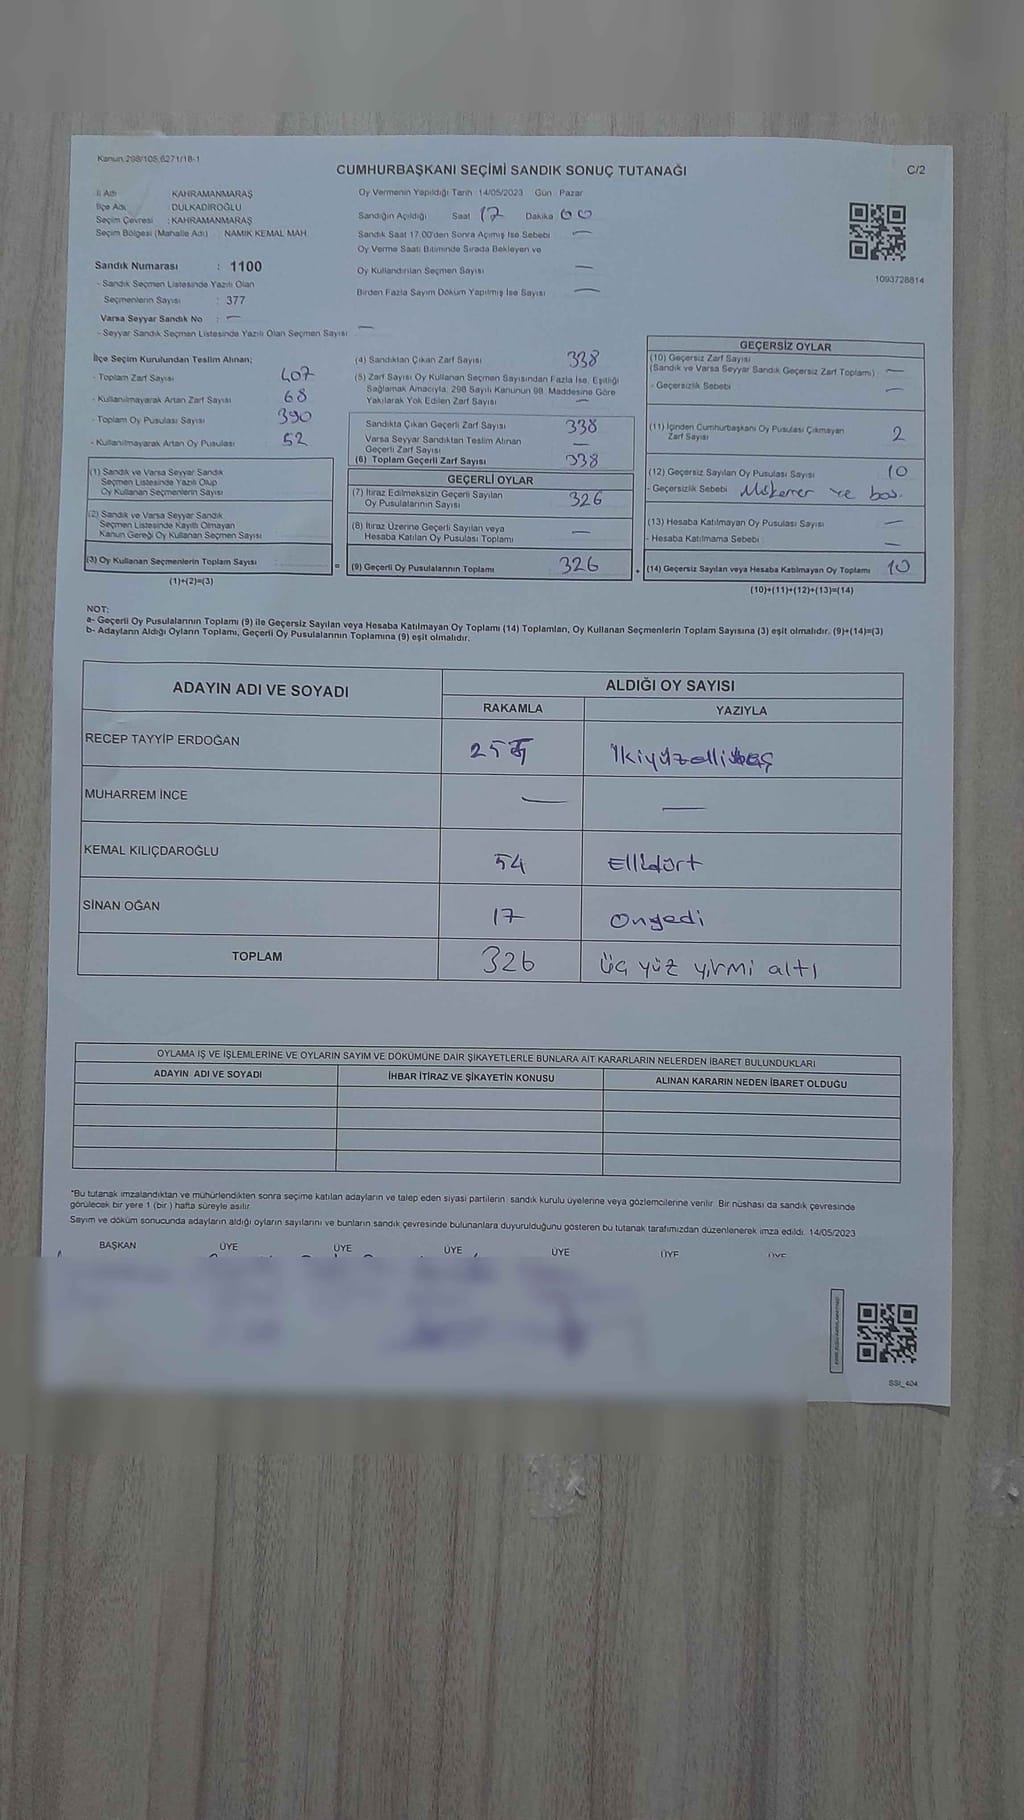 Kanun 298/105,6271/18-1
CUMHURBAŞKANI SEÇİMİ SANDIK SONUÇ TUTANAĞI
C/2
İl Adı : KAHRAMANMARAŞ
İlçe Adı : DULKADİROĞLU
Seçim Çevresi : KAHRAMANMARAŞ
Seçim Bölgesi (Mahalle Adı) : NAMIK KEMAL MAH.
Sandık Numarası : 1100
- Sandık Seçmen Listesinde Yazılı Olan
Seçmenlerin Sayısı : 377
Varsa Seyyar Sandık No : —
- Seyyar Sandık Seçmen Listesinde Yazılı Olan Seçmen Sayısı : —
Oy Vermenin Yapıldığı Tarih : 14/05/2023 Gün : Pazar
Sandığın Açıldığı Saat 17 Dakika 00
Sandık Saat 17.00'den Sonra Açılmış İse Sebebi —
Oy Verme Saati Bitiminde Sırada Bekleyen ve
Oy Kullandırılan Seçmen Sayısı —
Birden Fazla Sayım Döküm Yapılmış İse Sayısı —
1093728814
İlçe Seçim Kurulundan Teslim Alınan;
- Toplam Zarf Sayısı 407
- Kullanılmayarak Artan Zarf Sayısı 68
- Toplam Oy Pusulası Sayısı 390
- Kullanılmayarak Artan Oy Pusulası 52
(1) Sandık ve Varsa Seyyar Sandık
Seçmen Listesinde Yazılı Olup
Oy Kullanan Seçmenlerin Sayısı
(2) Sandık ve Varsa Seyyar Sandık
Seçmen Listesinde Kayıtlı Olmayan
Kanun Gereği Oy Kullanan Seçmen Sayısı
(3) Oy Kullanan Seçmenlerin Toplam Sayısı
(1)+(2)=(3)
(4) Sandıktan Çıkan Zarf Sayısı 338
(5) Zarf Sayısı Oy Kullanan Seçmen Sayısından Fazla İse, Eşitliği
Sağlamak Amacıyla, 298 Sayılı Kanunun 98. Maddesine Göre
Yakılarak Yok Edilen Zarf Sayısı —
Sandıkta Çıkan Geçerli Zarf Sayısı 338
Varsa Seyyar Sandıktan Teslim Alınan
Geçerli Zarf Sayısı —
(6) Toplam Geçerli Zarf Sayısı 338
GEÇERLİ OYLAR
(7) İtiraz Edilmeksizin Geçerli Sayılan
Oy Pusulalarının Sayısı 326
(8) İtiraz Üzerine Geçerli Sayılan veya
Hesaba Katılan Oy Pusulası Toplamı —
= (9) Geçerli Oy Pusulalarının Toplamı 326 +
GEÇERSİZ OYLAR
(10) Geçersiz Zarf Sayısı
(Sandık ve Varsa Seyyar Sandık Geçersiz Zarf Toplamı) —
- Geçersizlik Sebebi : —
(11) İçinden Cumhurbaşkanı Oy Pusulası Çıkmayan
Zarf Sayısı 2
(12) Geçersiz Sayılan Oy Pusulası Sayısı 10
- Geçersizlik Sebebi : Mükerrer ve boş.
(13) Hesaba Katılmayan Oy Pusulası Sayısı —
- Hesaba Katılmama Sebebi : —
(14) Geçersiz Sayılan veya Hesaba Katılmayan Oy Toplamı 10
(10)+(11)+(12)+(13)=(14)
NOT:
a- Geçerli Oy Pusulalarının Toplamı (9) ile Geçersiz Sayılan veya Hesaba Katılmayan Oy Toplamı (14) Toplamları, Oy Kullanan Seçmenlerin Toplam Sayısına (3) eşit olmalıdır. (9)+(14)=(3)
b- Adayların Aldığı Oyların Toplamı, Geçerli Oy Pusulalarının Toplamına (9) eşit olmalıdır.
ADAYIN ADI VE SOYADI
ALDIĞI OY SAYISI
RAKAMLA YAZIYLA
RECEP TAYYİP ERDOĞAN 255 İkiyüzellibeş
MUHARREM İNCE — —
KEMAL KILIÇDAROĞLU 54 Ellidört
SİNAN OĞAN 17 Onyedi
TOPLAM 326 üç yüz yirmi altı
OYLAMA İŞ VE İŞLEMLERİNE VE OYLARIN SAYIM VE DÖKÜMÜNE DAİR ŞİKAYETLERLE BUNLARA AİT KARARLARIN NELERDEN İBARET BULUNDUKLARI
ADAYIN ADI VE SOYADI İHBAR İTİRAZ VE ŞİKAYETİN KONUSU ALINAN KARARIN NEDEN İBARET OLDUĞU
*Bu tutanak imzalandıktan ve mühürlendikten sonra seçime katılan adayların ve talep eden siyasi partilerin, sandık kurulu üyelerine veya gözlemcilerine verilir. Bir nüshası da sandık çevresinde
görülecek bir yere 1 (bir ) hafta süreyle asılır.
Sayım ve döküm sonucunda adayların aldığı oyların sayılarını ve bunların sandık çevresinde bulunanlara duyurulduğunu gösteren bu tutanak tarafımızdan düzenlenerek imza edildi. 14/05/2023
BAŞKAN ÜYE ÜYE ÜYE ÜYE ÜYE ÜYE
SSI_404